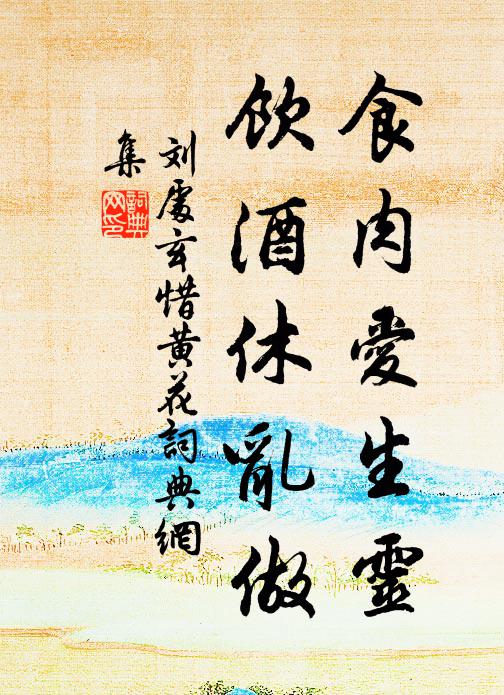 食肉愛生靈
飲酒休亂做
刘處玄惜黄花詞典網
集
詞典
网印